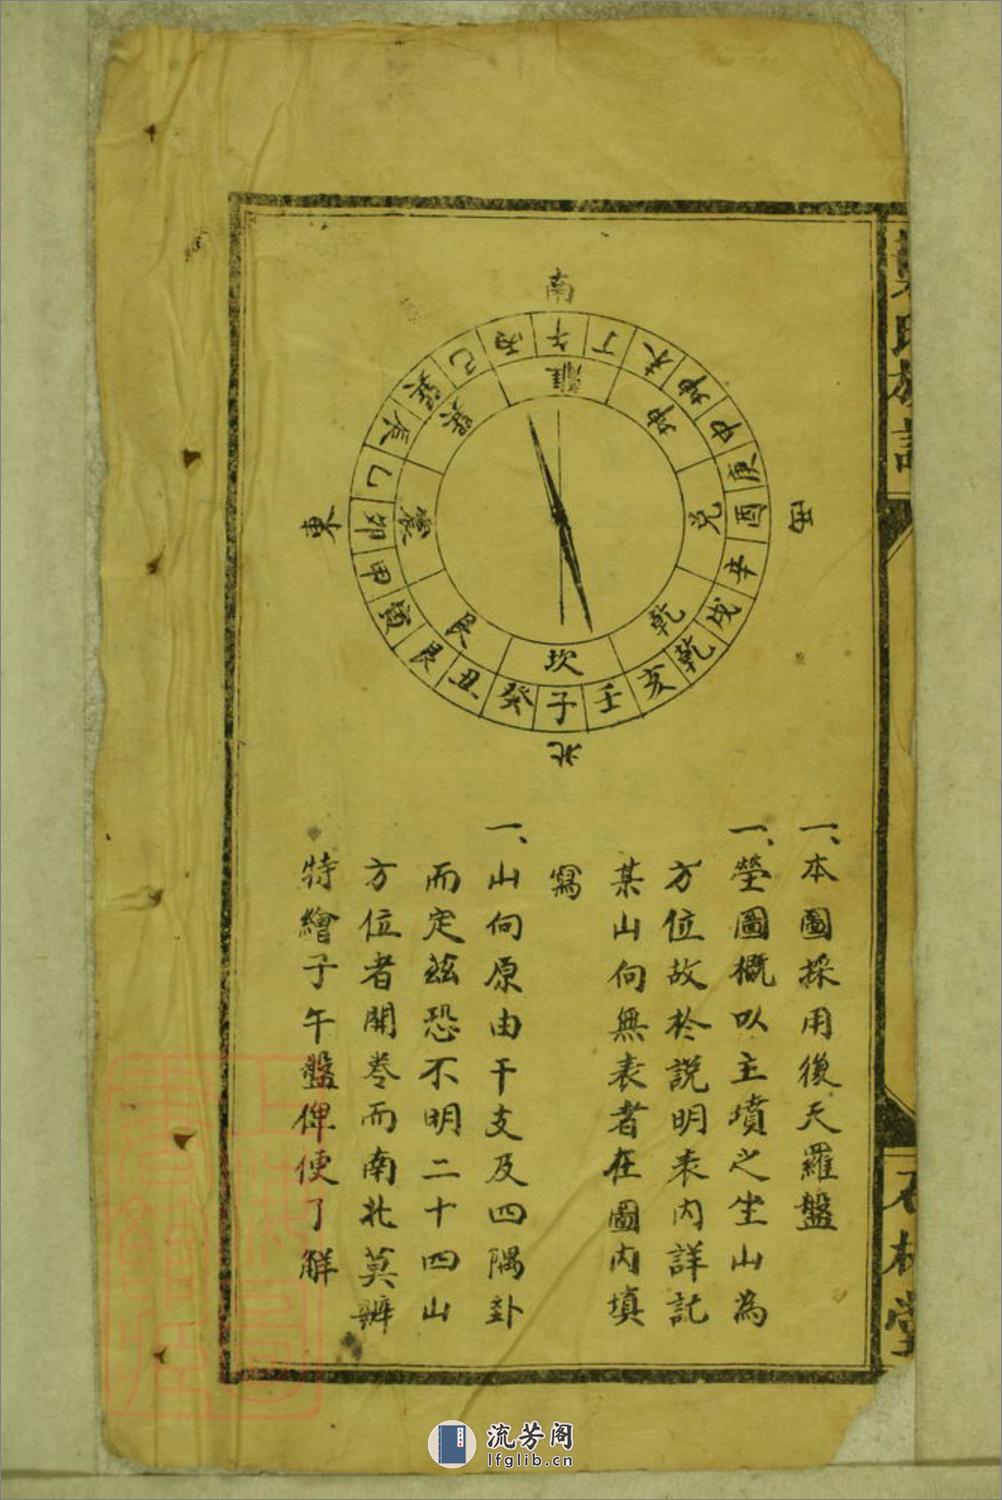 南
午 丁 未 坤 申 庚 酉 辛 戌 乾 亥 壬 子 癸 丑 艮 寅 甲 卯 乙 辰 巽 巳 丙
離 坤 兌 乾 坎 艮 震 巽
東
西
北
一、本圖採用後天羅盤
一、塋圖概以主墳之坐山為
方位故於說明表內詳記
某山向無表者在圖內填
寫
一、山向原由干支及四隅卦
而定茲恐不明二十四山
方位者開卷而南北莫辨
特繪子午盤俾便了解
氏族譜
石林堂
流芳阁
lfglib.cn